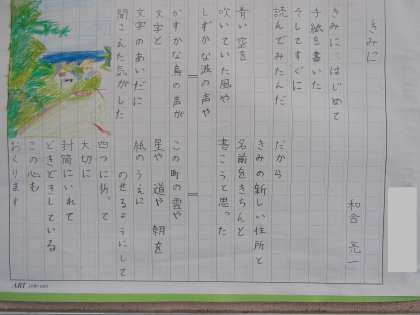 きみに
和合 亮一
きみに はじめて
手紙を書いた
そしてすぐに
読んでみたんだ
青い空を
吹いていた風や
しずかな波の声や
かすかな鳥の声が
文字と
文字のあいだに
聞こえた気がした
だから
きみの新しい住所と
名前をきちんと
書こうと思った
この町の雲や
星や 道や 朝を
紙のうえに
のせるようにして
四つに折って
大切に
封筒にいれて
どきどきしている
この心も
おくります
ART